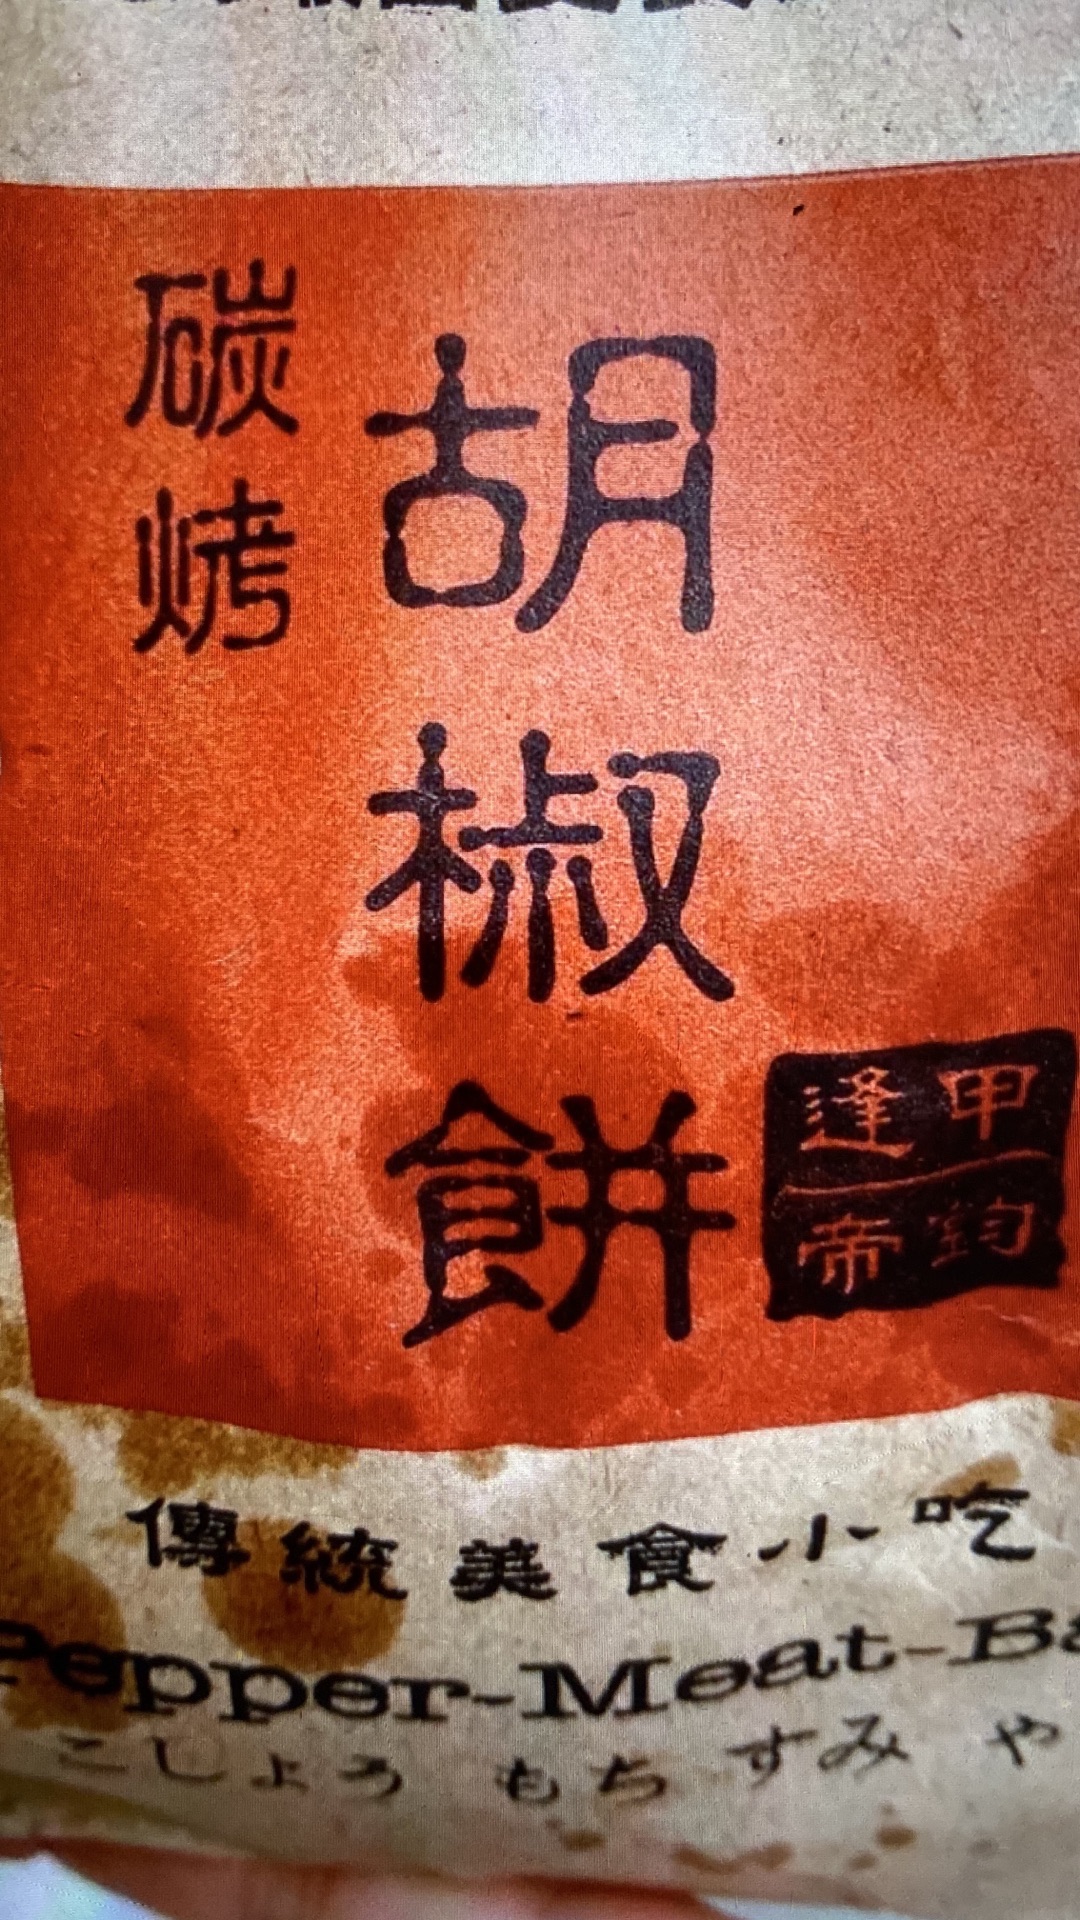 碳烤
胡椒餅
逢甲
帝鈞
傳統美食小吃
Pepper-Meat-Ba
こしょう もち すみ や